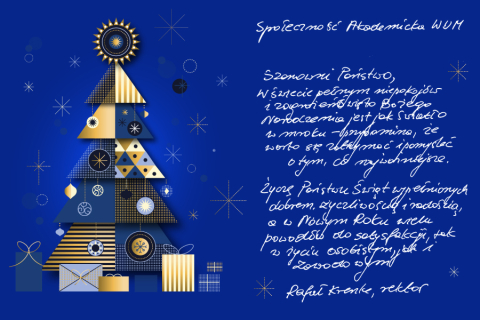 Społeczność Akademicka WUM
Szanowni Państwo,
W świecie pełnym niepokojów
i zagrożeń święto Bożego
Narodzenia jest jak światło
w mroku – przypomina, że
warto się zatrzymać i pomyśleć
o tym, co najważniejsze.
Życzę Państwu Świąt wypełnionych
dobrem, życzliwością i radością,
a w Nowym Roku wielu
powodów do satysfakcji, tak
w życiu osobistym, jak i
zawodowym
Rafał Krenke, rektor